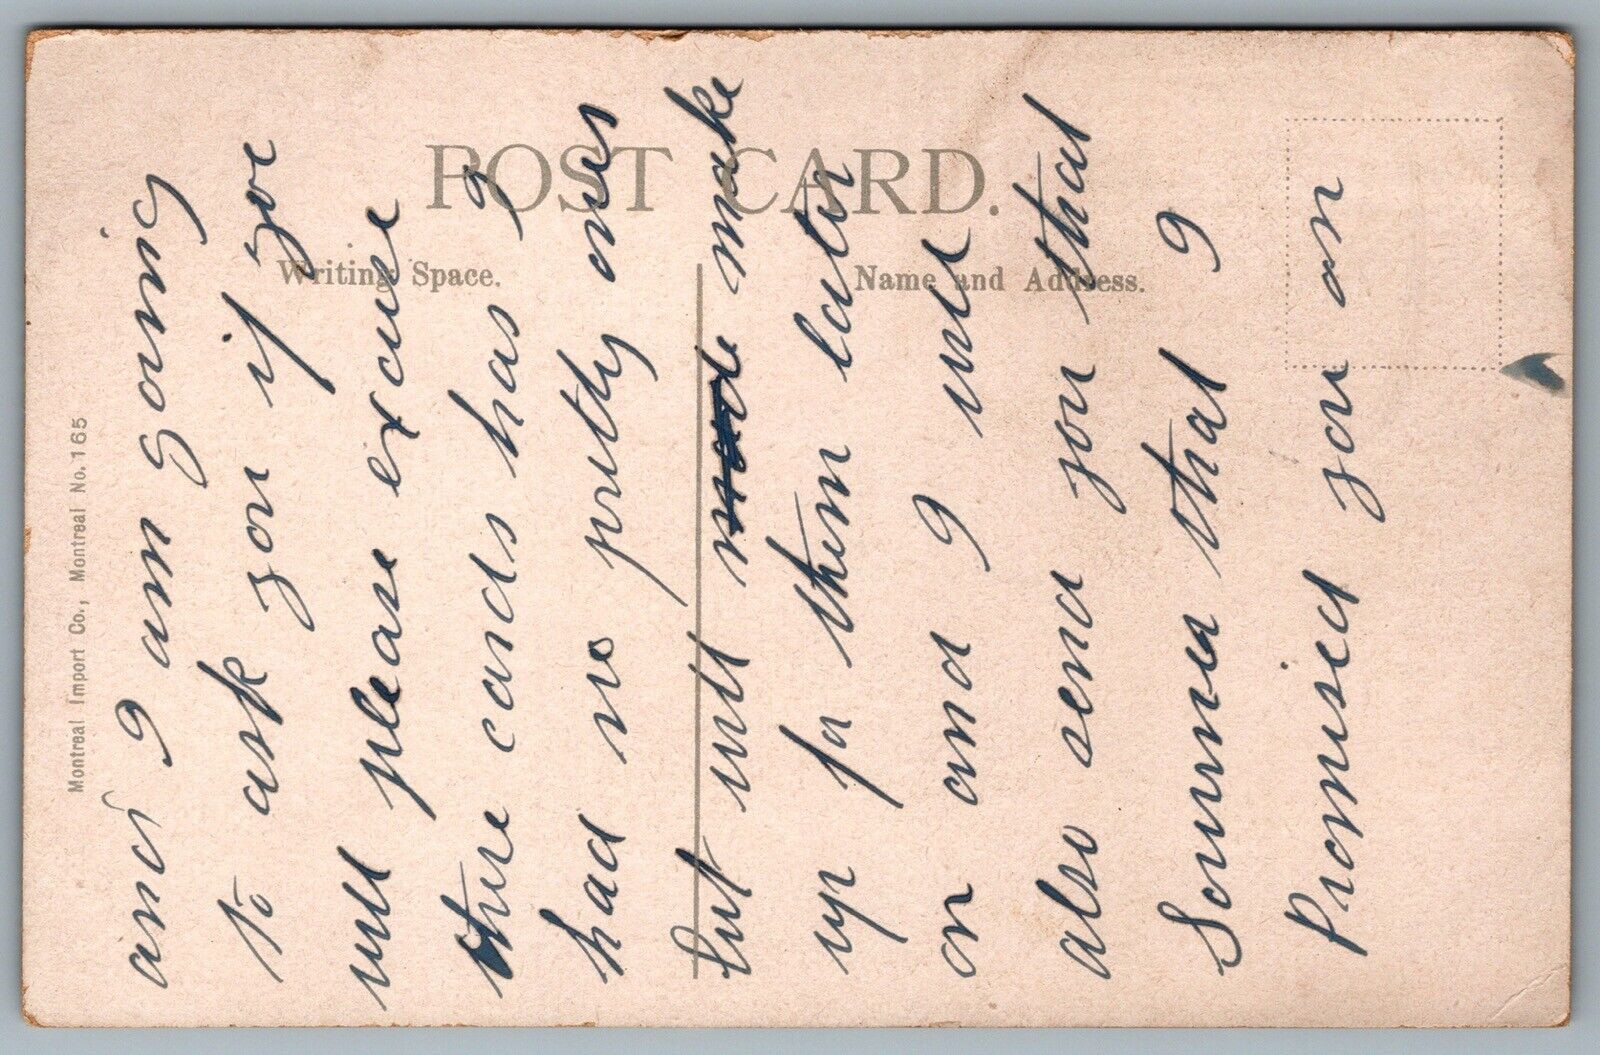 POST CARD.
Writing Space.
Name and Address.
Montreal Import Co., Montreal No. 165
and I am going
to ask you if you
will please excuse
these cards has I
had no pretty ones
but will made make
up for them later
on and I will
also send you that
that I
Promised you on